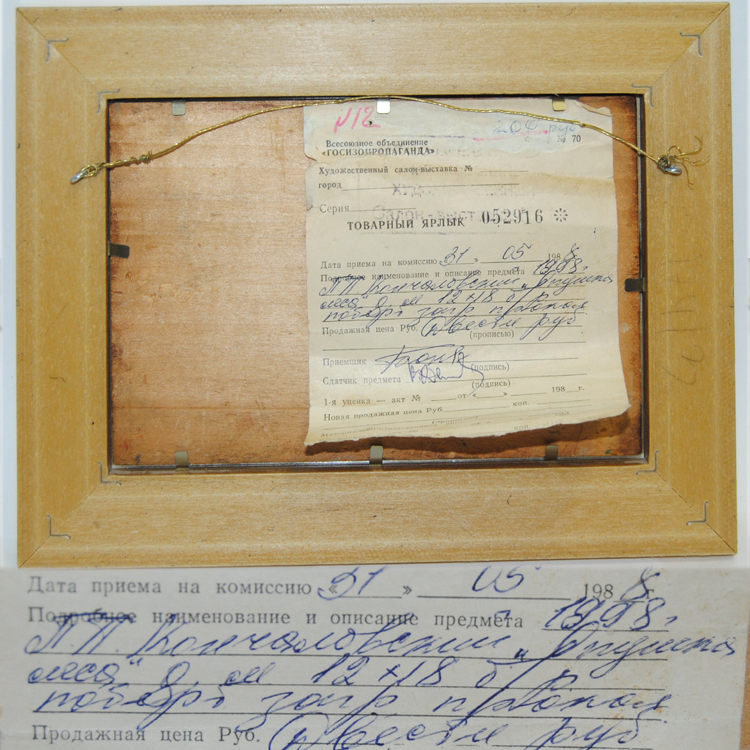 №12 200 руб
Всесоюзное объединение № 70
«ГОСИЗОПРОПАГАНДА»
Художественный салон-выставка №
город
Серия
Салон-выст
ТОВАРНЫЙ ЯРЛЫК 052916 ※
Дата приема на комиссию «31» 05 1988 г.
Подробное наименование и описание предмета 1998г
П.П. Кончаловский „Опушка
леса" 12×18
Продажная цена Руб. Двести руб
(прописью)
Приемщик
(подпись)
Сдатчик предмета
(подпись)
1-я уценка — акт № от « » 198 г.
Новая продажная цена Руб. коп.
Дата приема на комиссию «31» 05 1988 г.
Подробное наименование и описание предмета 1998г
П.П. Кончаловский „Опушка
леса" 12×18
Продажная цена Руб. Двести руб